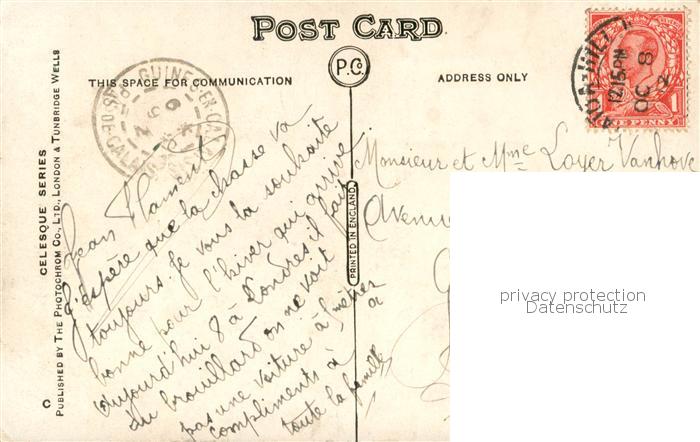 POST CARD.
P.Co.
THIS SPACE FOR COMMUNICATION
ADDRESS ONLY
CELESQUE SERIES
PUBLISHED BY THE PHOTOCHROM CO., LTD., LONDON & TUNBRIDGE WELLS
C
PRINTED IN ENGLAND.
GUINES-EN-CAL
PAS-DE-CALAIS
12.15PM
OC 8
ONE PENNY
1
Jean Flament
J'espère que la chasse va
toujours. Je vous la souhaite
bonne pour l'hiver qui arrive
aujourd'hui 8 à Londres il fait
du brouillard on ne voit
pas une voiture à mètres
compliments à
toute la famille
Monsieur et Mme Loyer Vanhove
Avenu
privacy protection
Datenschutz